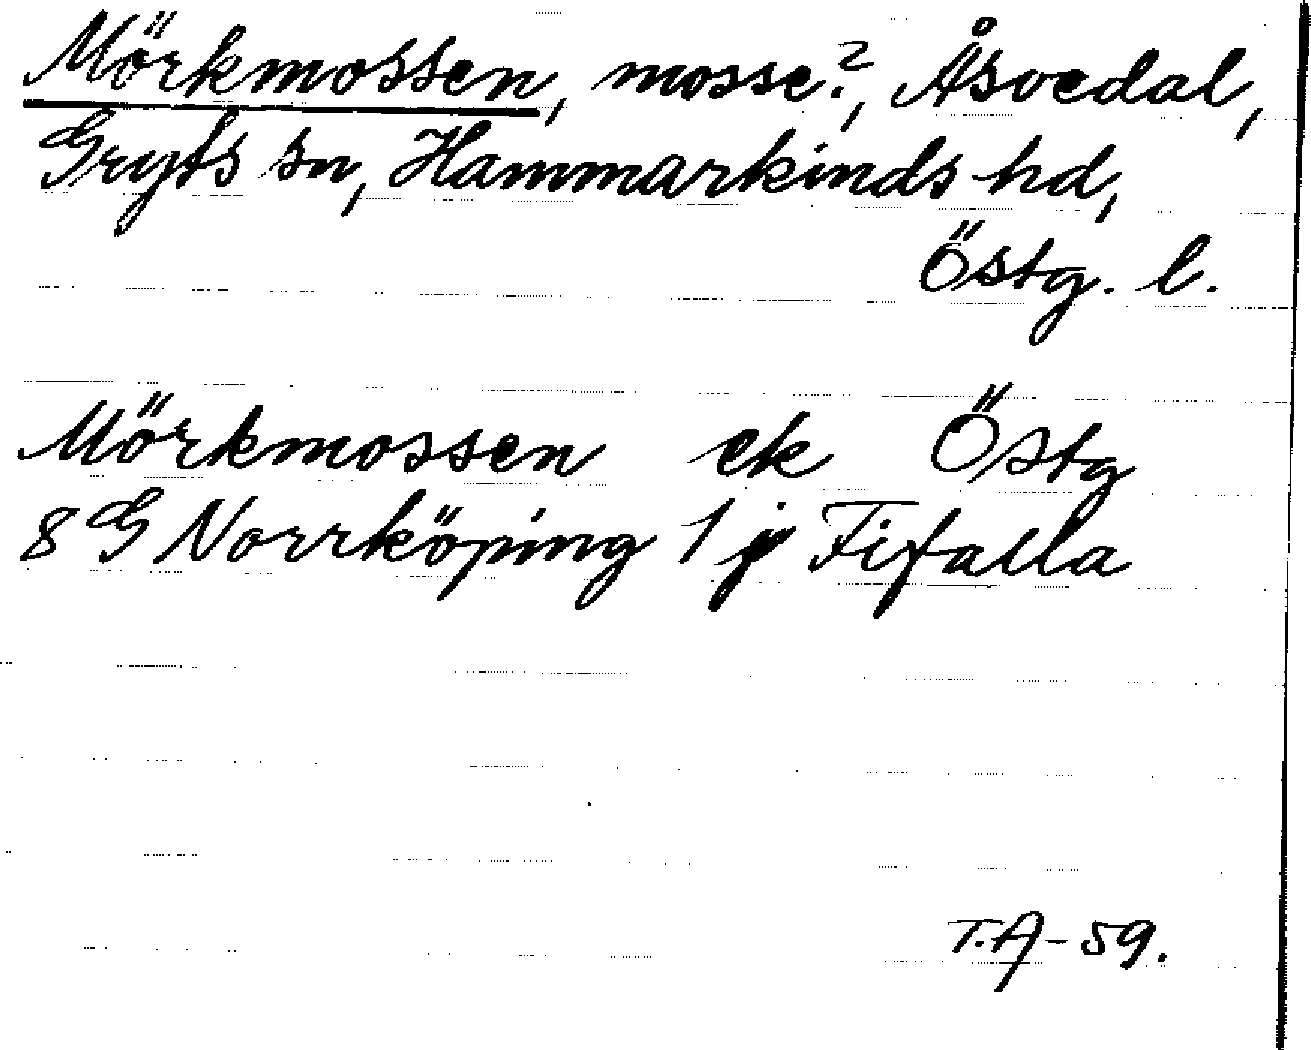 Mörkmossen, mosse?, Åsvedal,
Gryts sn, Hammarkinds hd,
Östg. l.
Mörkmossen ek Östg
8 G Norrköping 1 j Fifalla
T.A-59.